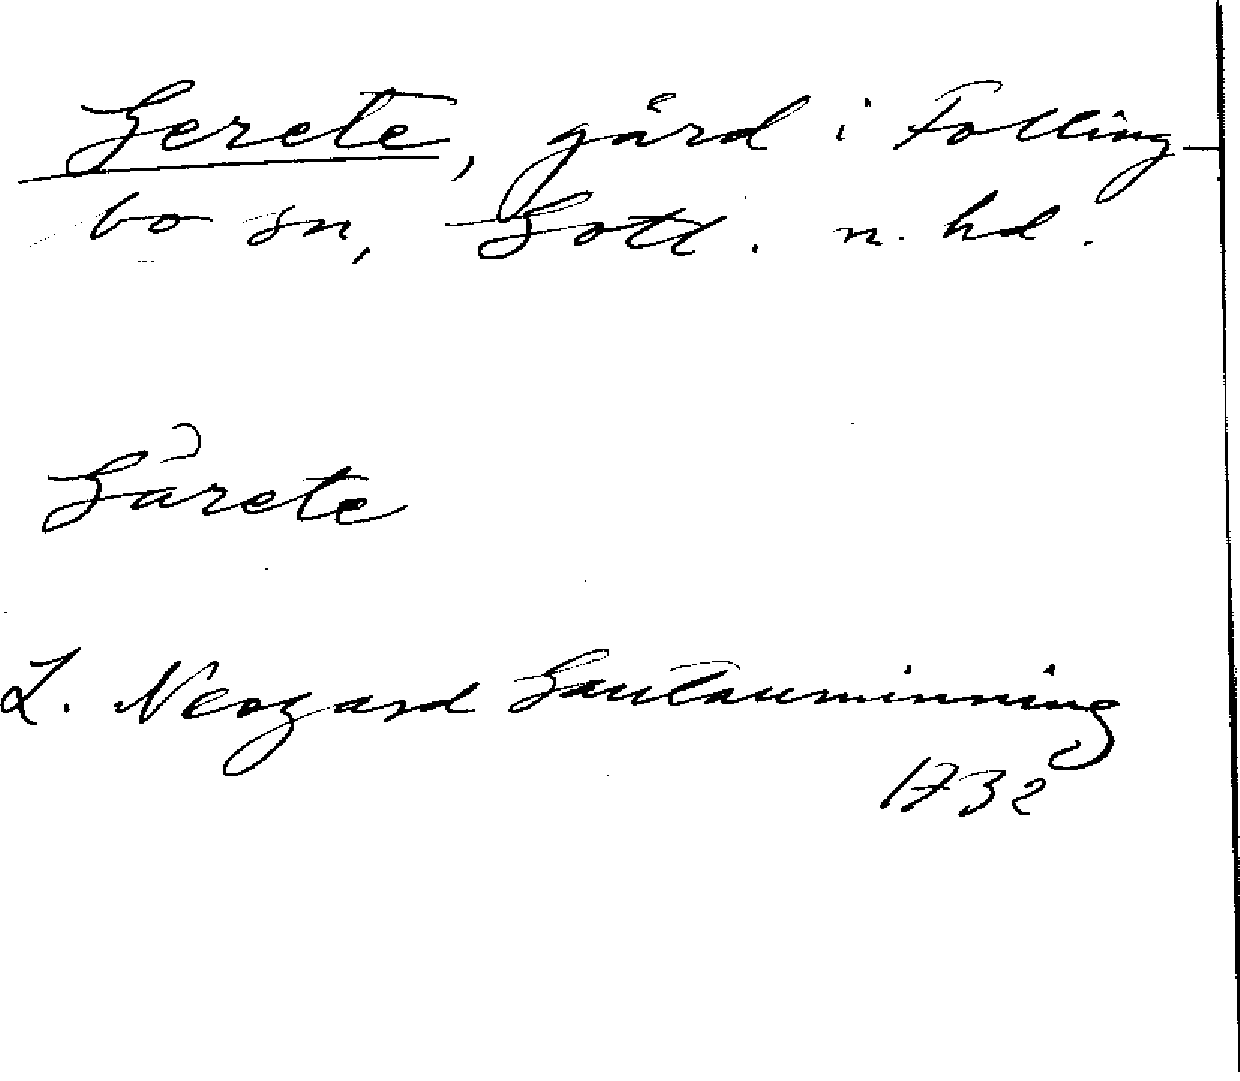 Gerete, gård i Folling-
bo sn, Gotl. n. hd.
Gårete
L. Neogard Gautauminning
1732